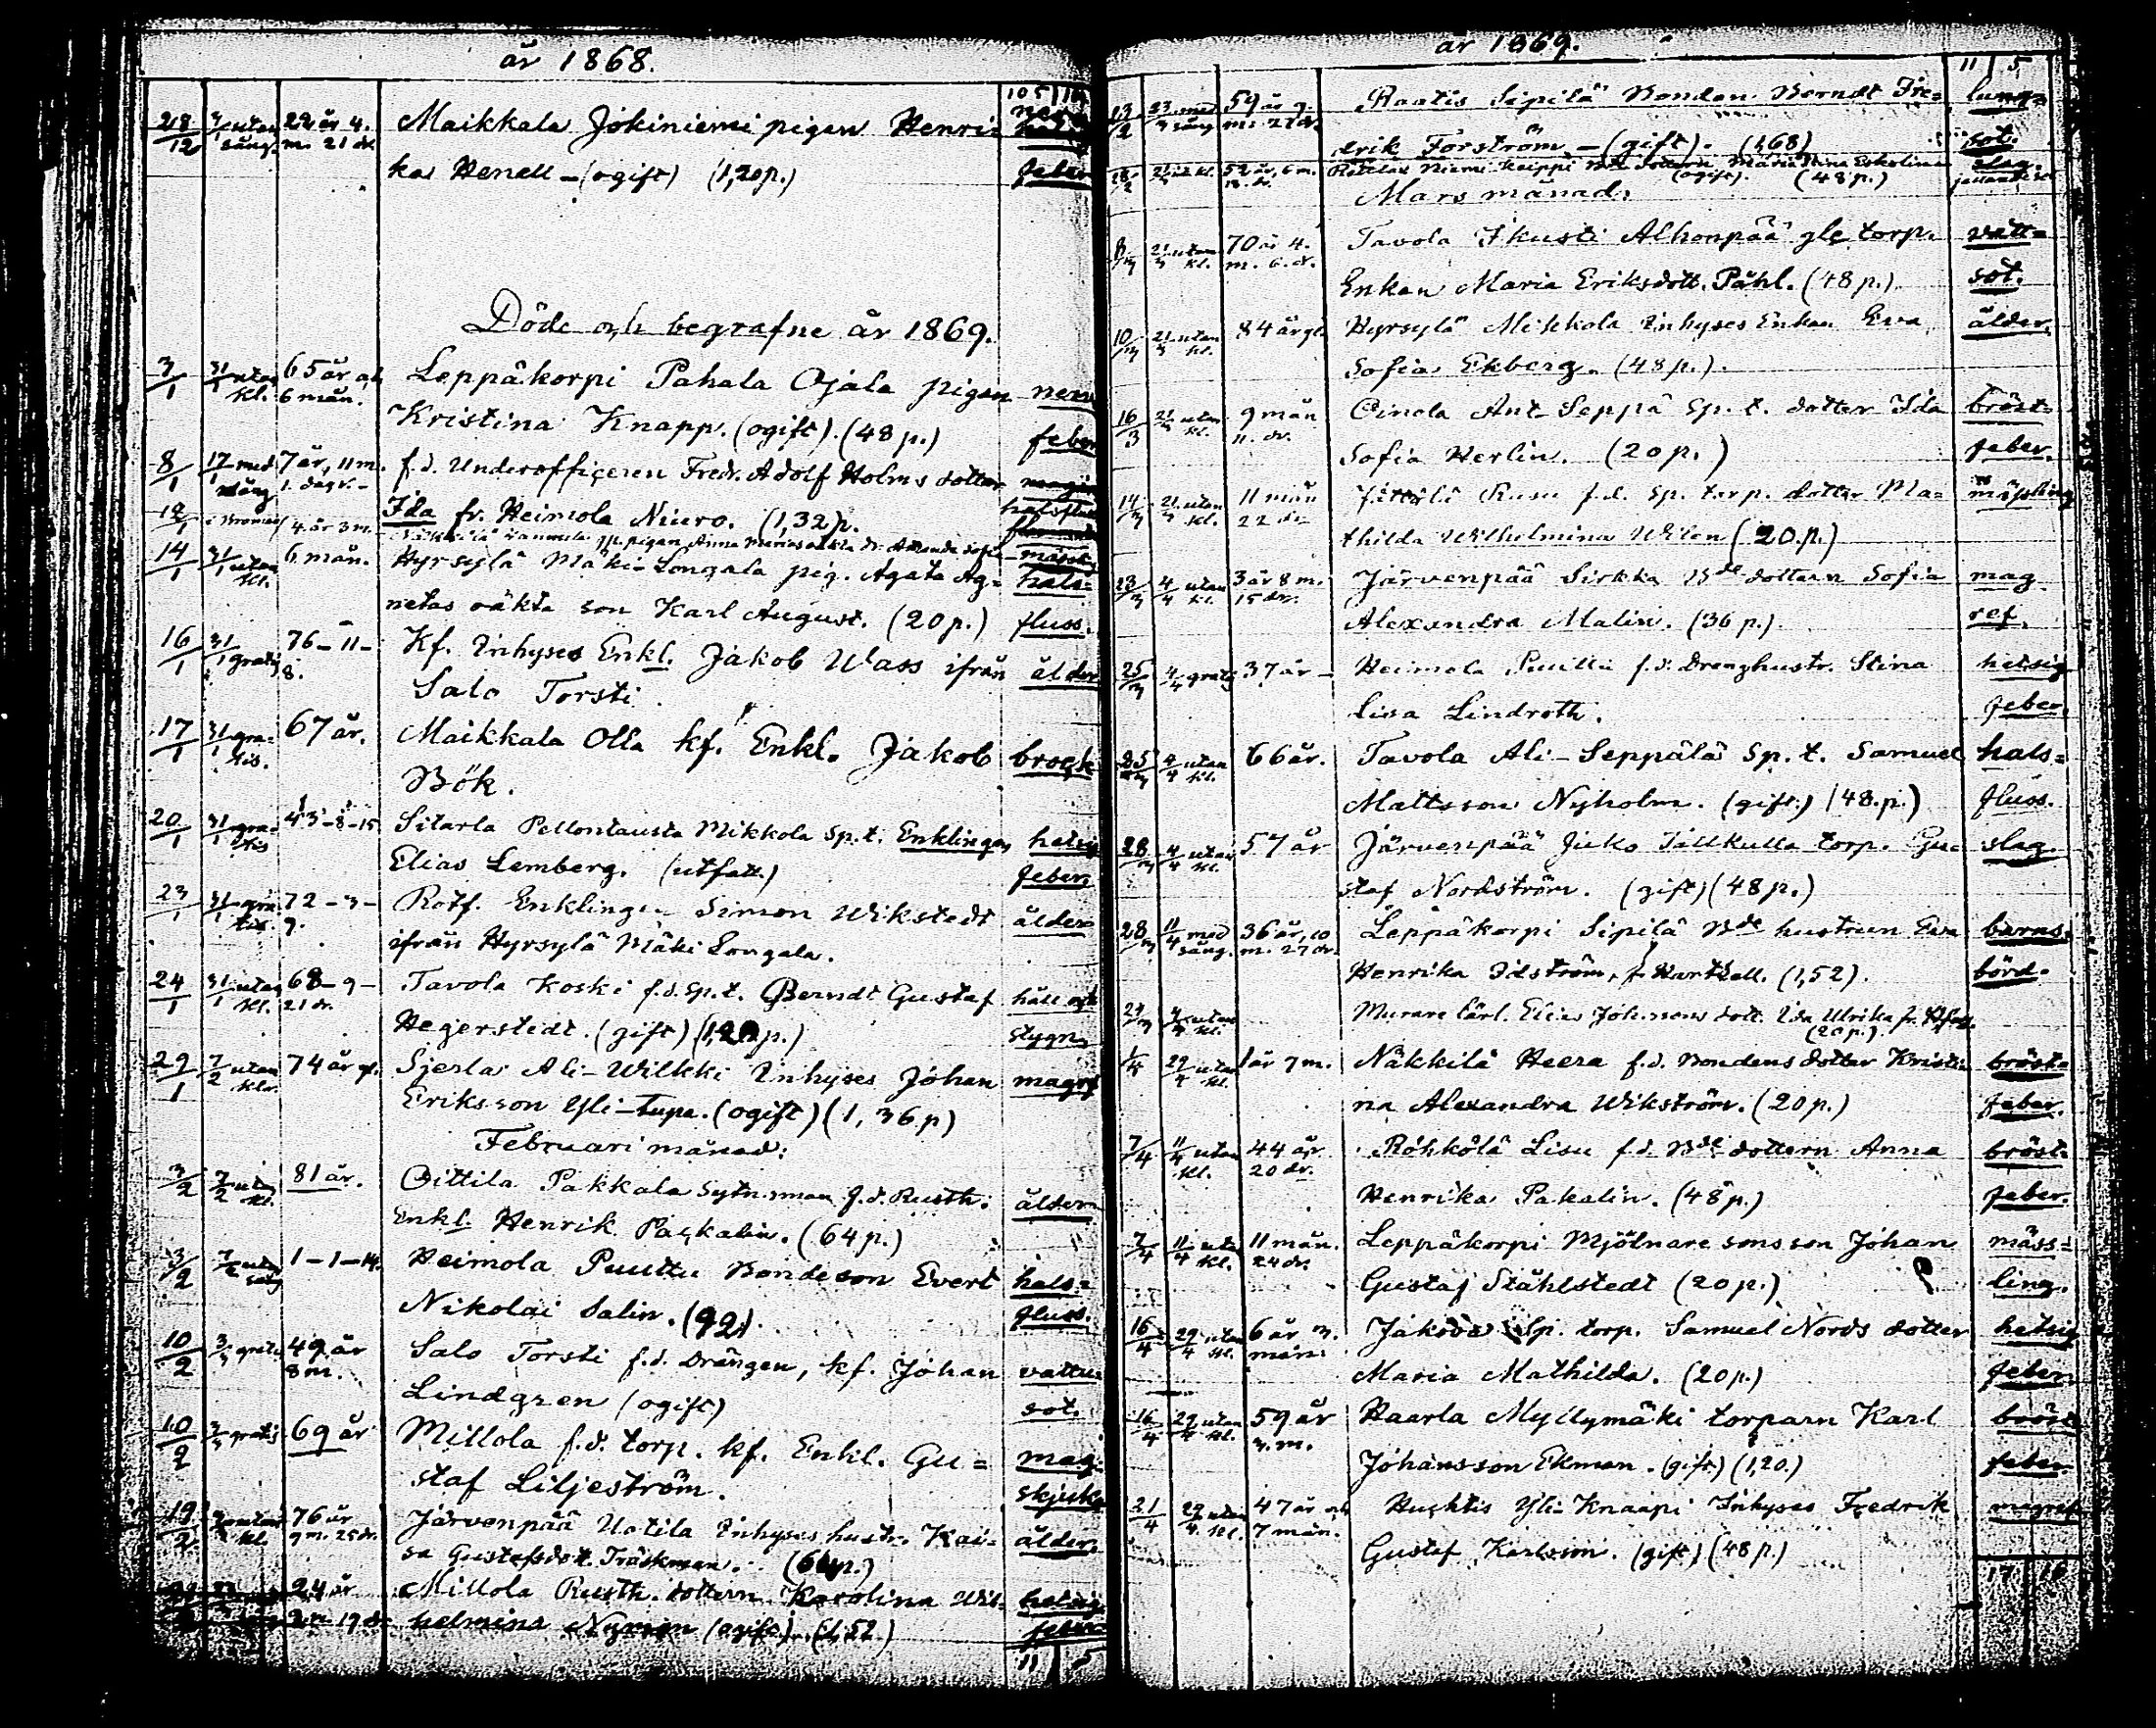 år 1868.
105
28/12 utan säng. 22 år 4. m. 21 dr. Maikkala Jokiniemi pigan Henri= 
kas Henell - (ogift) (1,20 p.) feber
Döde och begrafne år 1869.
3/1 31/1 utan kl. 65 år och 6 mån. Leppäkorpi Pahala Ojala pigan nerv
Kristina Knapp. (ogift). (48 p.) feber
8/1 17/1 med säng 7 år, 11 m. 1. dag. f.d. Underofficeren Fredr. Adolf Holms dotter
Ida fr. Heimola Niuro. (1,32 p. halsfluss
12/1 4 år 3 m. pigan Anna Marias Amanda Sofia
14/1 31/1 utan kl. 6 mån. Hyrsylä Mäki-Longala pig. Agata Ag= hals=
netas oäkta son Karl August. (20 p.) fluss.
16/1 31/1 gratis 76 - 11 - 8. Kf. Inhyses Enkl. Jakob Wass ifrån ålder
Salo Torsti.
17/1 31/1 gra= tis. 67 år. Maikkala Olla kf. Enkl. Jakob brock
Bök.
20/1 31/1 gra= tis 43-8-15 Sitarla Pellontausta Mikkola Sp.t. Enklingen hetsig
Elias Lemberg. (utfatt.) feber.
23/1 31/1 gra= tis. 72-3-9. Rotf. Enklingen Simon Wikstedt ålder
ifrån Hyrsylä Mäki Longala.
24/1 31/1 utan kl. 68-9-21 dr. Tavola Koski f.d. sp.t. Berndt Gustaf håll och
Hegerstedt. (gift) stygn.
29/1 7/2 utan kl. 74 år gl. Sjerla Ali-Wilkki Inhyses Johan magref
Eriksson Yli-tupa. (ogift) (1,36 p)
Februari månad:
3/2 7/2 utan kl. 81 år. Oittila Pakkala sytn.man f.d. Rusth. ålder
Enkl. Henrik Packalin. (64 p.)
3/2 7/2 utan säng 1-1-14. Heimola Puuttu Bondeson Evert hals=
Nikolai Salin. (92). fluss.
10/2 gratis 49 år 8 m. Salo Torsti f.d. Drängen, kf. Johan vattu=
Lindgren (ogift) sot.
10/2 gratis 69 år Millola f.d. torp. kf. Enkl. Gu= mag.
staf Liljeström. skjuka
19/2 utan kl. 76 år 9 m. 25 dr. Järvenpää Uotila Inhyses hustr. Kai= ålder.
sa Gustafsdot. Träskman. (64 p.)
24 år Millola Rusth. dottern Karolina Wil= hetsig
19 dr. helmina (ogift). (1,52.) feber
11
år 1869.
11 5
13/2 med säng 59 år 9. m. Raatis Sipilä Bonden Berndt Fre= lung=
drik Forström - (gift). (1,68) sot.
52 år, 6 m. Niemi (ogift). (48 p.) slag.
Mars månad.
8/3 21/3 utan kl. 70 år 4. m. 6. dr. Tavola Ikusti Alhonpää gle torp. vatt=
Enkan Maria Eriksdott. Påhl. (48 p.) sot.
10/3 21/3 utan kl. 84 år gl. Hyrsylä Mikkola Inhyses Enkan Eva ålder.
Sofia Ekberg. (48 p.).
16/3 21/3 utan kl. 9 mån 11. dr. Oinola Ant-Seppä Sp. t. dotter Ida bröst=
Sofia Herlin. (20 p.) feber.
14/3 21/3 utan kl. 11 mån 22 dr. Rusu f.d. sp. torp. dotter Ma= mässling
thilda Wilhelmina Wilen (20. p.)
23/3 4/4 utan kl. 3 år 8 m. 15 dr. Järvenpää Sirkka Bde dottern Sofia mag
Alexandra Malin. (36 p.) ref.
25/3 4/4 gratis 37 år - Heimola Puuttu f.d. Drenghustr. Stina hetsig
Lisa Lindroth. feber.
25/3 4/4 utan kl. 66 år. Tavola Ali-Seppälä Sp. t. Samuel hals=
Mattsson Nyholm. (gift.) (48. p.) fluss.
28/3 4/4 utan kl. 57 år Järvenpää Juko Tallkulla torp. Gu= slag.
staf Nordström. (gift) (48 p.)
28/3 11/4 med säng. 36 år, 10 m. 27 dr. Leppäkorpi Sipilä Bde hustrun Eva barns=
Henrika Idström, f. Hartzell. (1,52). börd.
utan kl. Murare Lärl. Elias Johnsons dott. Ida Ulrika fr.
(20 p.)
utan kl. 1 år 7 m. Näkkilä Heera f.d. Bondens dotter Kristi= bröst=
na Alexandra Wikström. (20 p.) feber.
7/4 11/4 utan kl. 44 år 20 dr. Röhkölä Lisu f.d. Bde dottern Anna bröst=
Henrika Pakalin. (48 p.) feber.
7/4 11/4 utan kl. 11 mån. 24 dr. Leppäkorpi Mjölnare sons son Johan mäss=
Gustaf Ståhlstedt (20 p.) ling.
16/4 29/4 utan kl. 6 år 3. mån. Sp. torp. Samuel Nords dotter hetsig
Maria Mathilda. (20 p.) feber.
16/4 29/4 utan kl. 59 år 3. m. Haarla Myllymäki torparn Karl bröst
Johansson Ekman. (gift) (1,20.) feber
21/4 29/4 utan kl. 47 år och 7 mån. Huhtis Yli-Knaapi Inhyses Fredrik magref
Gustaf Karlsson. (gift) (48 p.)
17 16